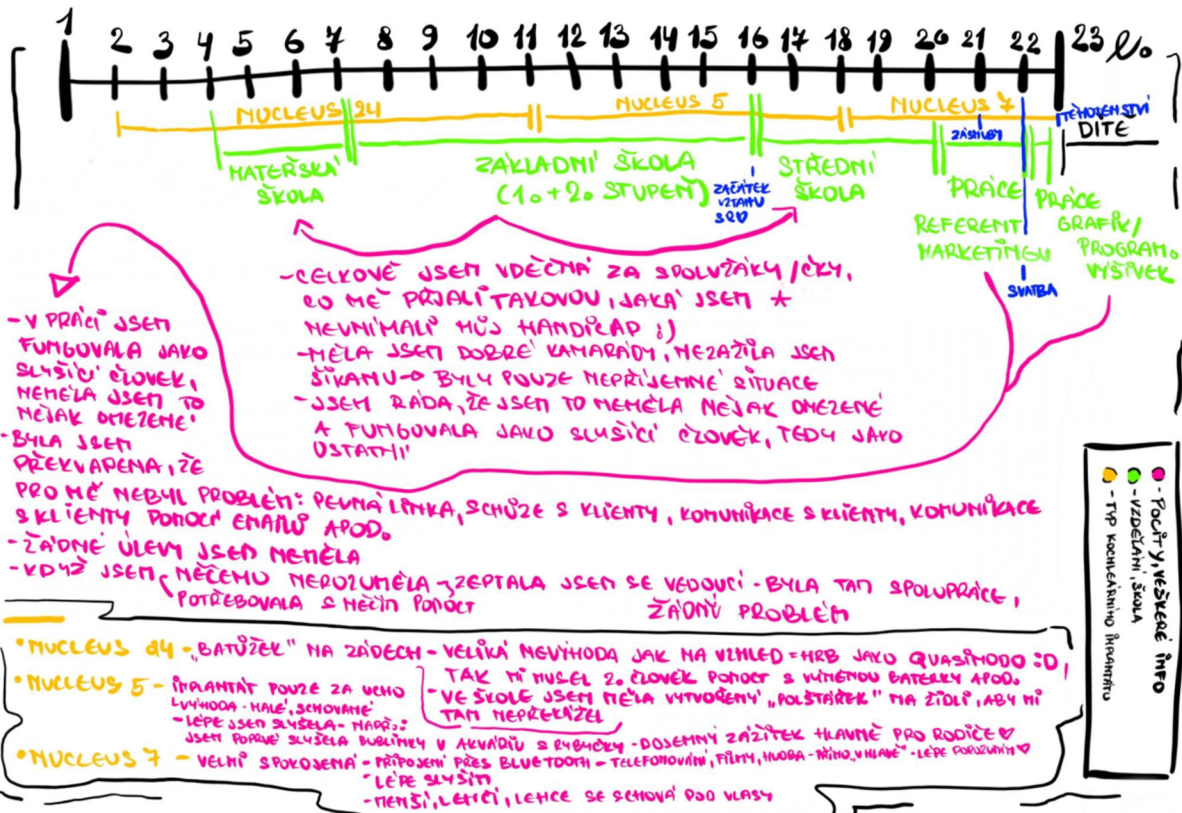 1 2 3 4 5 6 7 8 9 10 11 12 13 14 15 16 17 18 19 20 21 22 23 L.
NUCLEUS 24
NUCLEUS 5
NUCLEUS 7
ZÁSNUBY
TĚHOTENSTVÍ
DÍTĚ
MATEŘSKÁ
ŠKOLA
ZÁKLADNÍ ŠKOLA
(1. + 2. STUPEŇ)
ZAČÁTEK
VZTAHU
SRD
STŘEDNÍ
ŠKOLA
PRÁCE
REFERENT
MARKETINGU
PRÁCE
GRAFIK/
PROGRAM.
VÝŠIVEK
SVATBA
- CELKOVĚ JSEM VDĚČNÁ ZA SPOLUŽÁKY/ČKY,
CO MĚ PŘIJALI TAKOVOU, JAKÁ JSEM +
NEVNÍMALI MŮJ HANDICAP :)
- MĚLA JSEM DOBRÉ KAMARÁDY, NEZAŽILA JSEM
ŠIKANU → BYLY POUZE NEPŘÍJEMNÉ SITUACE
- JSEM RÁDA, ŽE JSEM TO NEMĚLA NĚJAK OMEZENÉ
A FUNGOVALA JAKO SLYŠÍCÍ ČLOVĚK, TEDY JAKO
OSTATNÍ
- V PRÁCI JSEM
FUNGOVALA JAKO
SLYŠÍCÍ ČLOVĚK,
NEMĚLA JSEM TO
NĚJAK OMEZENÉ
- BYLA JSEM
PŘEKVAPENA, ŽE
PRO MĚ NEBYL PROBLÉM: PEVNÁ LINKA, SCHŮZE S KLIENTY, KOMUNIKACE S KLIENTY, KOMUNIKACE
S KLIENTY POMOCÍ EMAILŮ APOD.
- ŽÁDNÉ ÚLEVY JSEM NEMĚLA
- KDYŽ JSEM NĚČEMU NEROZUMĚLA → ZEPTALA JSEM SE VEDOUCÍ - BYLA TAM SPOLUPRÁCE,
POTŘEBOVALA S NĚČÍM POMOCT
ŽÁDNÝ PROBLÉM
• NUCLEUS 24 - „BATŮŽEK" NA ZÁDECH - VELIKÁ NEVÝHODA JAK NA VZHLED = HRB JAKO QUASIMODO :D,
TAK MI MUSEL 2. ČLOVĚK POMOCT S VÝMĚNOU BATERKY APOD.
- VE ŠKOLE JSEM MĚLA VYTVOŘENÝ „POLŠTÁŘEK" NA ŽIDLI, ABY MI
TAM NEPŘEKÁŽEL
• NUCLEUS 5 - IMPLANTÁT POUZE ZA UCHO
VÝHODA - MALÉ, SCHOVANÉ
- LÉPE JSEM SLYŠELA - NAPŘ.:
JSEM POPRVÉ SLYŠELA BUBLINKY V AKVÁRIU S RYBIČKY - DOJEMNÝ ZÁŽITEK HLAVNĚ PRO RODIČE ♡
• NUCLEUS 7 - VELMI SPOKOJENÁ - PŘIPOJENÍ PŘES BLUETOOTH - TELEFONOVÁNÍ, FILMY, HUDBA - PŘÍMO „V HLAVĚ" - LÉPE POROZUMÍM ♡
- LÉPE SLYŠÍM
- MENŠÍ, LEHČÍ, LEHCE SE SCHOVÁ POD VLASY
- POCITY, VEŠKERÉ INFO
- VZDĚLÁNÍ, ŠKOLA
- TYP KOCHLEÁRNÍHO IMPLANTÁTU